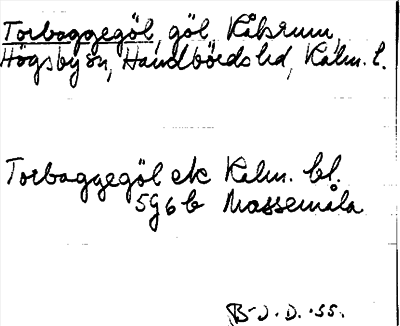 Torbaggegöl, göl, Kåksrum,
Högsby sn, Handbörds hd, Kalm. l.
Torbaggegöl ek Kalm. bl.
5g6b Mossemåla
B-J. D. -55.